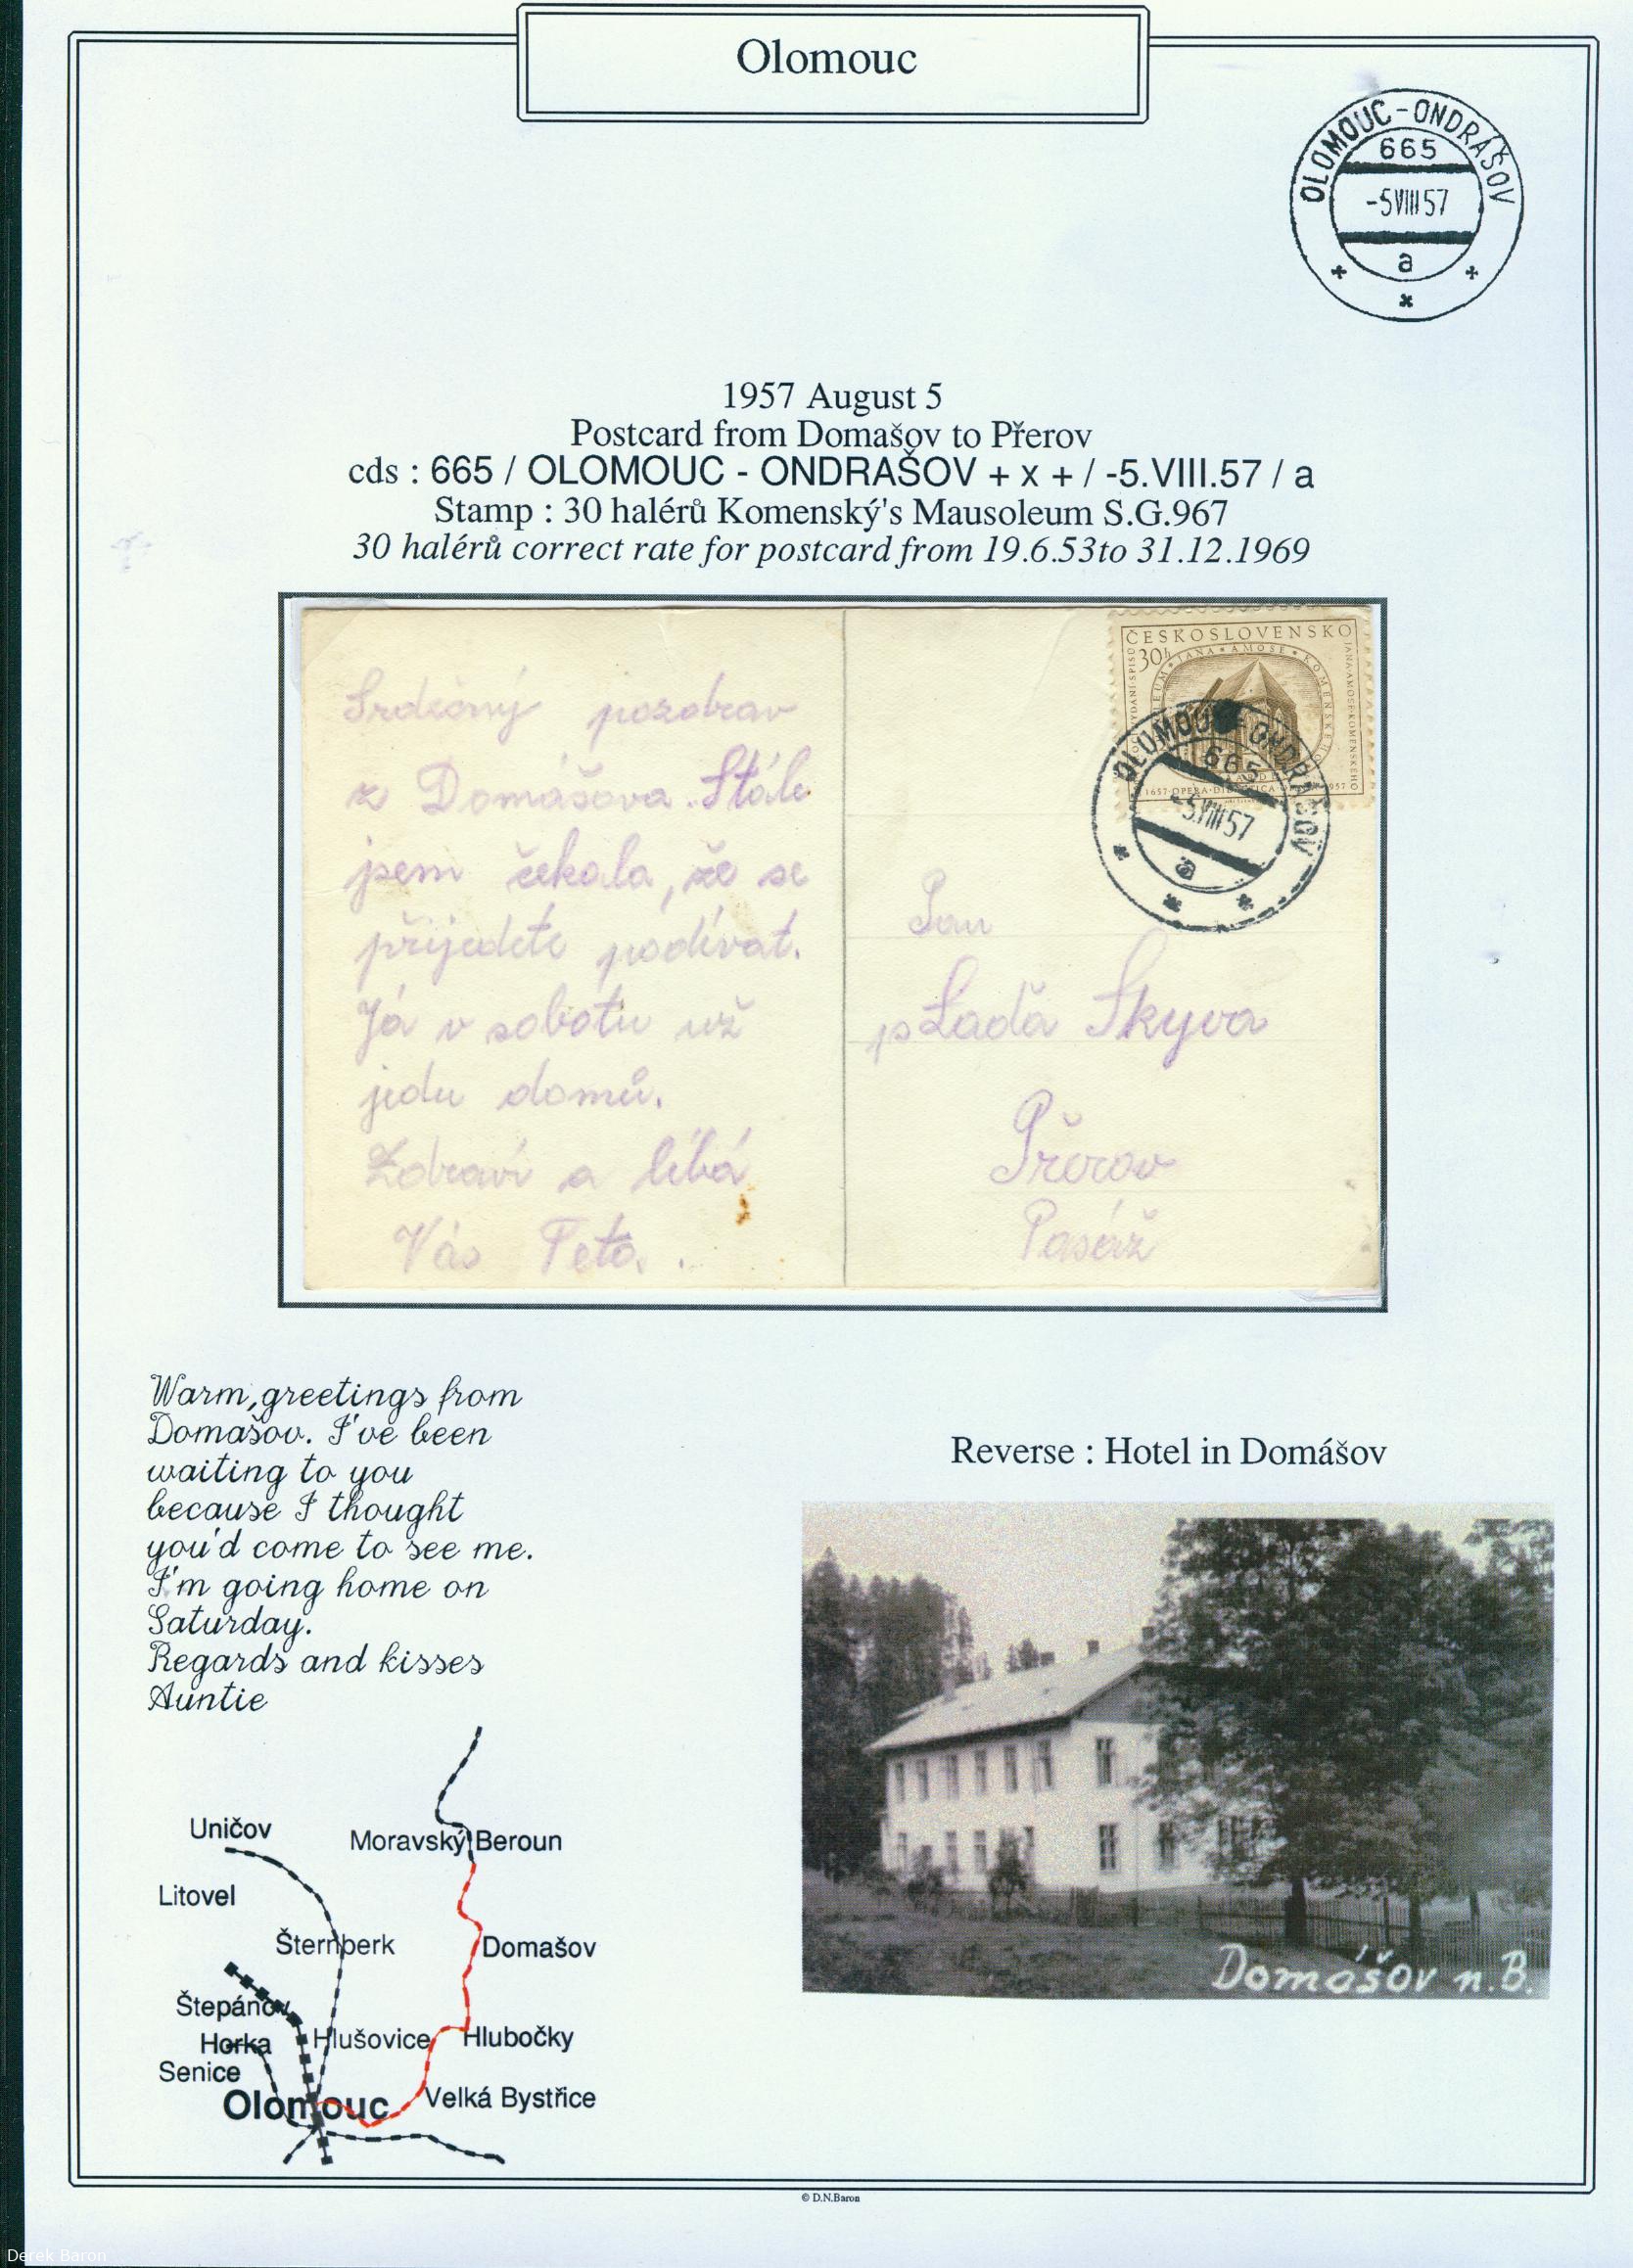 Olomouc
OLOMOUC-ONDRAŠOV
665
-5VIII57
a
1957 August 5
Postcard from Domašov to Přerov
cds : 665 / OLOMOUC - ONDRAŠOV + x + / -5.VIII.57 / a
Stamp : 30 halérů Komenský's Mausoleum S.G.967
30 halérů correct rate for postcard from 19.6.53to 31.12.1969
ČESKOSLOVENSKO
30h
JANA AMOSE
JANA AMOSE KOMENSKÉHO
OLOMOUC-ONDRAŠOV
665
-5.VIII57
a
Srdečný pozdrav
z Domášova. Stále
jsem čekala, že se
přijedete podívat.
Já v sobotu už
jedu domů.
Zdraví a líbá
Vás Teta.
Pan
Laďa Skyva
Přerov
Pasáž
Warm,greetings from
Domašov. I've been
waiting to you
because I thought
you'd come to see me.
I'm going home on
Saturday.
Regards and kisses
Auntie
Reverse : Hotel in Domášov
Domášov n.B.
Uničov
Moravský Beroun
Litovel
Šternberk
Domašov
Štepánov
Horka
Hlušovice
Hlubočky
Senice
Olomouc
Velká Bystřice
© D.N.Baron
Derek Baron